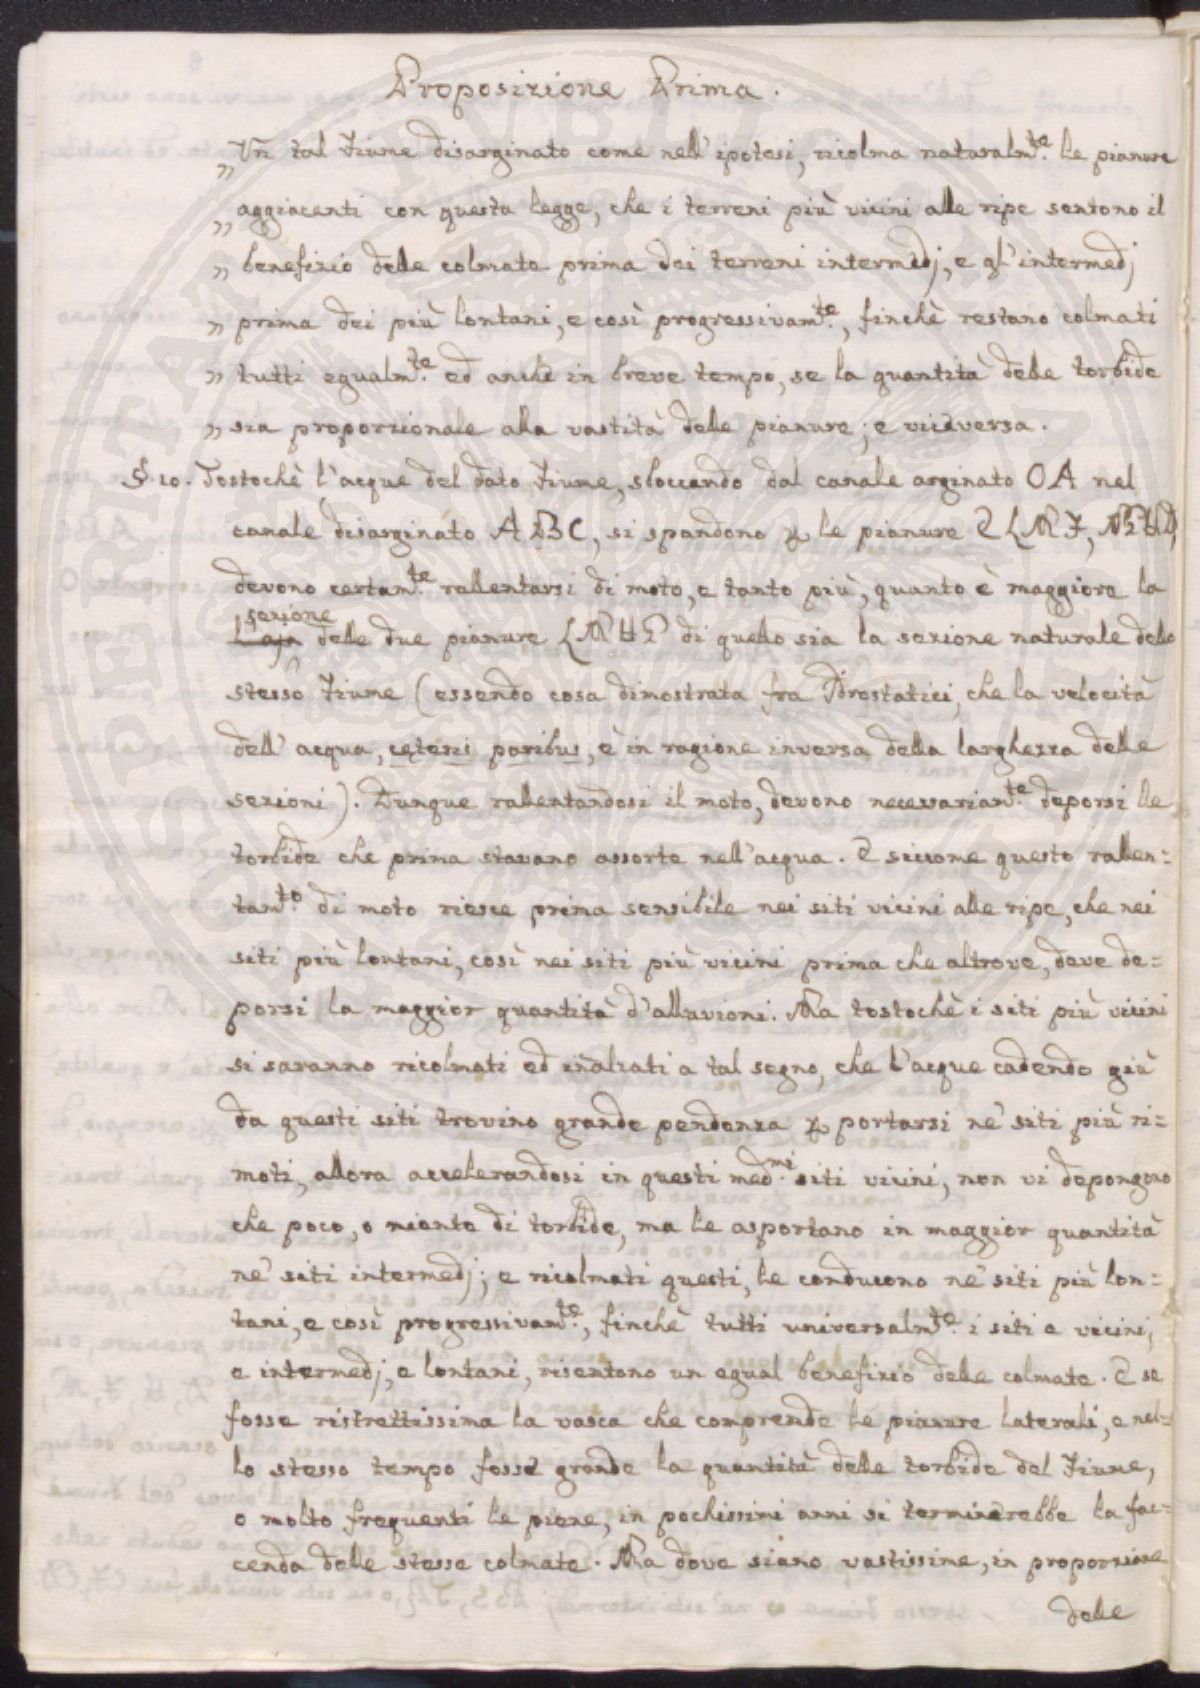 Proposizione Prima.
„ Un tal Fiume disarginato come nell' ipotesi, ricolma naturalm.te le pianure
„ aggiacenti con questa legge, che i terreni più vicini alle ripe sentono il
„ benefizio delle colmate prima dei terreni intermedj, e gl' intermedj
„ prima dei più lontani, e così progressivam.te, finchè restano colmati
„ tutti egualm.te ed anche in breve tempo, se la quantità delle torbide
„ sia proporzionale alla vastità delle pianure; e viceversa.
§. 10. Tostochè l'acque del dato Fiume, sboccando dal canale arginato OA nel
canale disarginato ABC, si spandono p le pianure
devono certam.te rallentarsi di moto, e tanto più, quanto è maggiore la
sezione
delle due pianure di quello sia la sezione naturale dello
stesso Fiume (essendo cosa dimostrata fra Idrostatici, che la velocità
dell' acqua, ceteris paribus, è in ragione inversa della larghezza delle
sezioni). Dunque rallentandosi il moto, devono necessariam.te deporsi le
torbide che prima stavano assorte nell'acqua. E siccome questo rallen=
tam.to di moto riesce prima sensibile nei siti vicini alle ripe, che nei
siti più lontani, così nei siti più vicini prima che altrove, deve de=
porsi la maggior quantità d'alluvioni. Ma tostochè i siti più vicini
si saranno ricolmati ed inalzati a tal segno, che l'acque cadendo giù
da questi siti trovino grande pendenza p portarsi ne' siti più ri=
moti, allora accelerandosi in questi med.mi siti vicini, non vi depongono
che poco, o niente di torbide, ma le asportano in maggior quantità
ne' siti intermedj; e ricolmati questi, le conducono ne' siti più lon=
tani, e così progressivam.te, finchè tutti universalm.te i siti e vicini,
e intermedj, e lontani, risentono un egual benefizio delle colmate. E se
fosse ristrettissima la vasca che comprende le pianure laterali, e nel=
lo stesso tempo fosse grande la quantità delle torbide del Fiume,
o molto frequenti le piene, in pochissimi anni si terminerebbe la fac=
cenda delle stesse colmate. Ma dove siano vastissime, in proporzione
delle